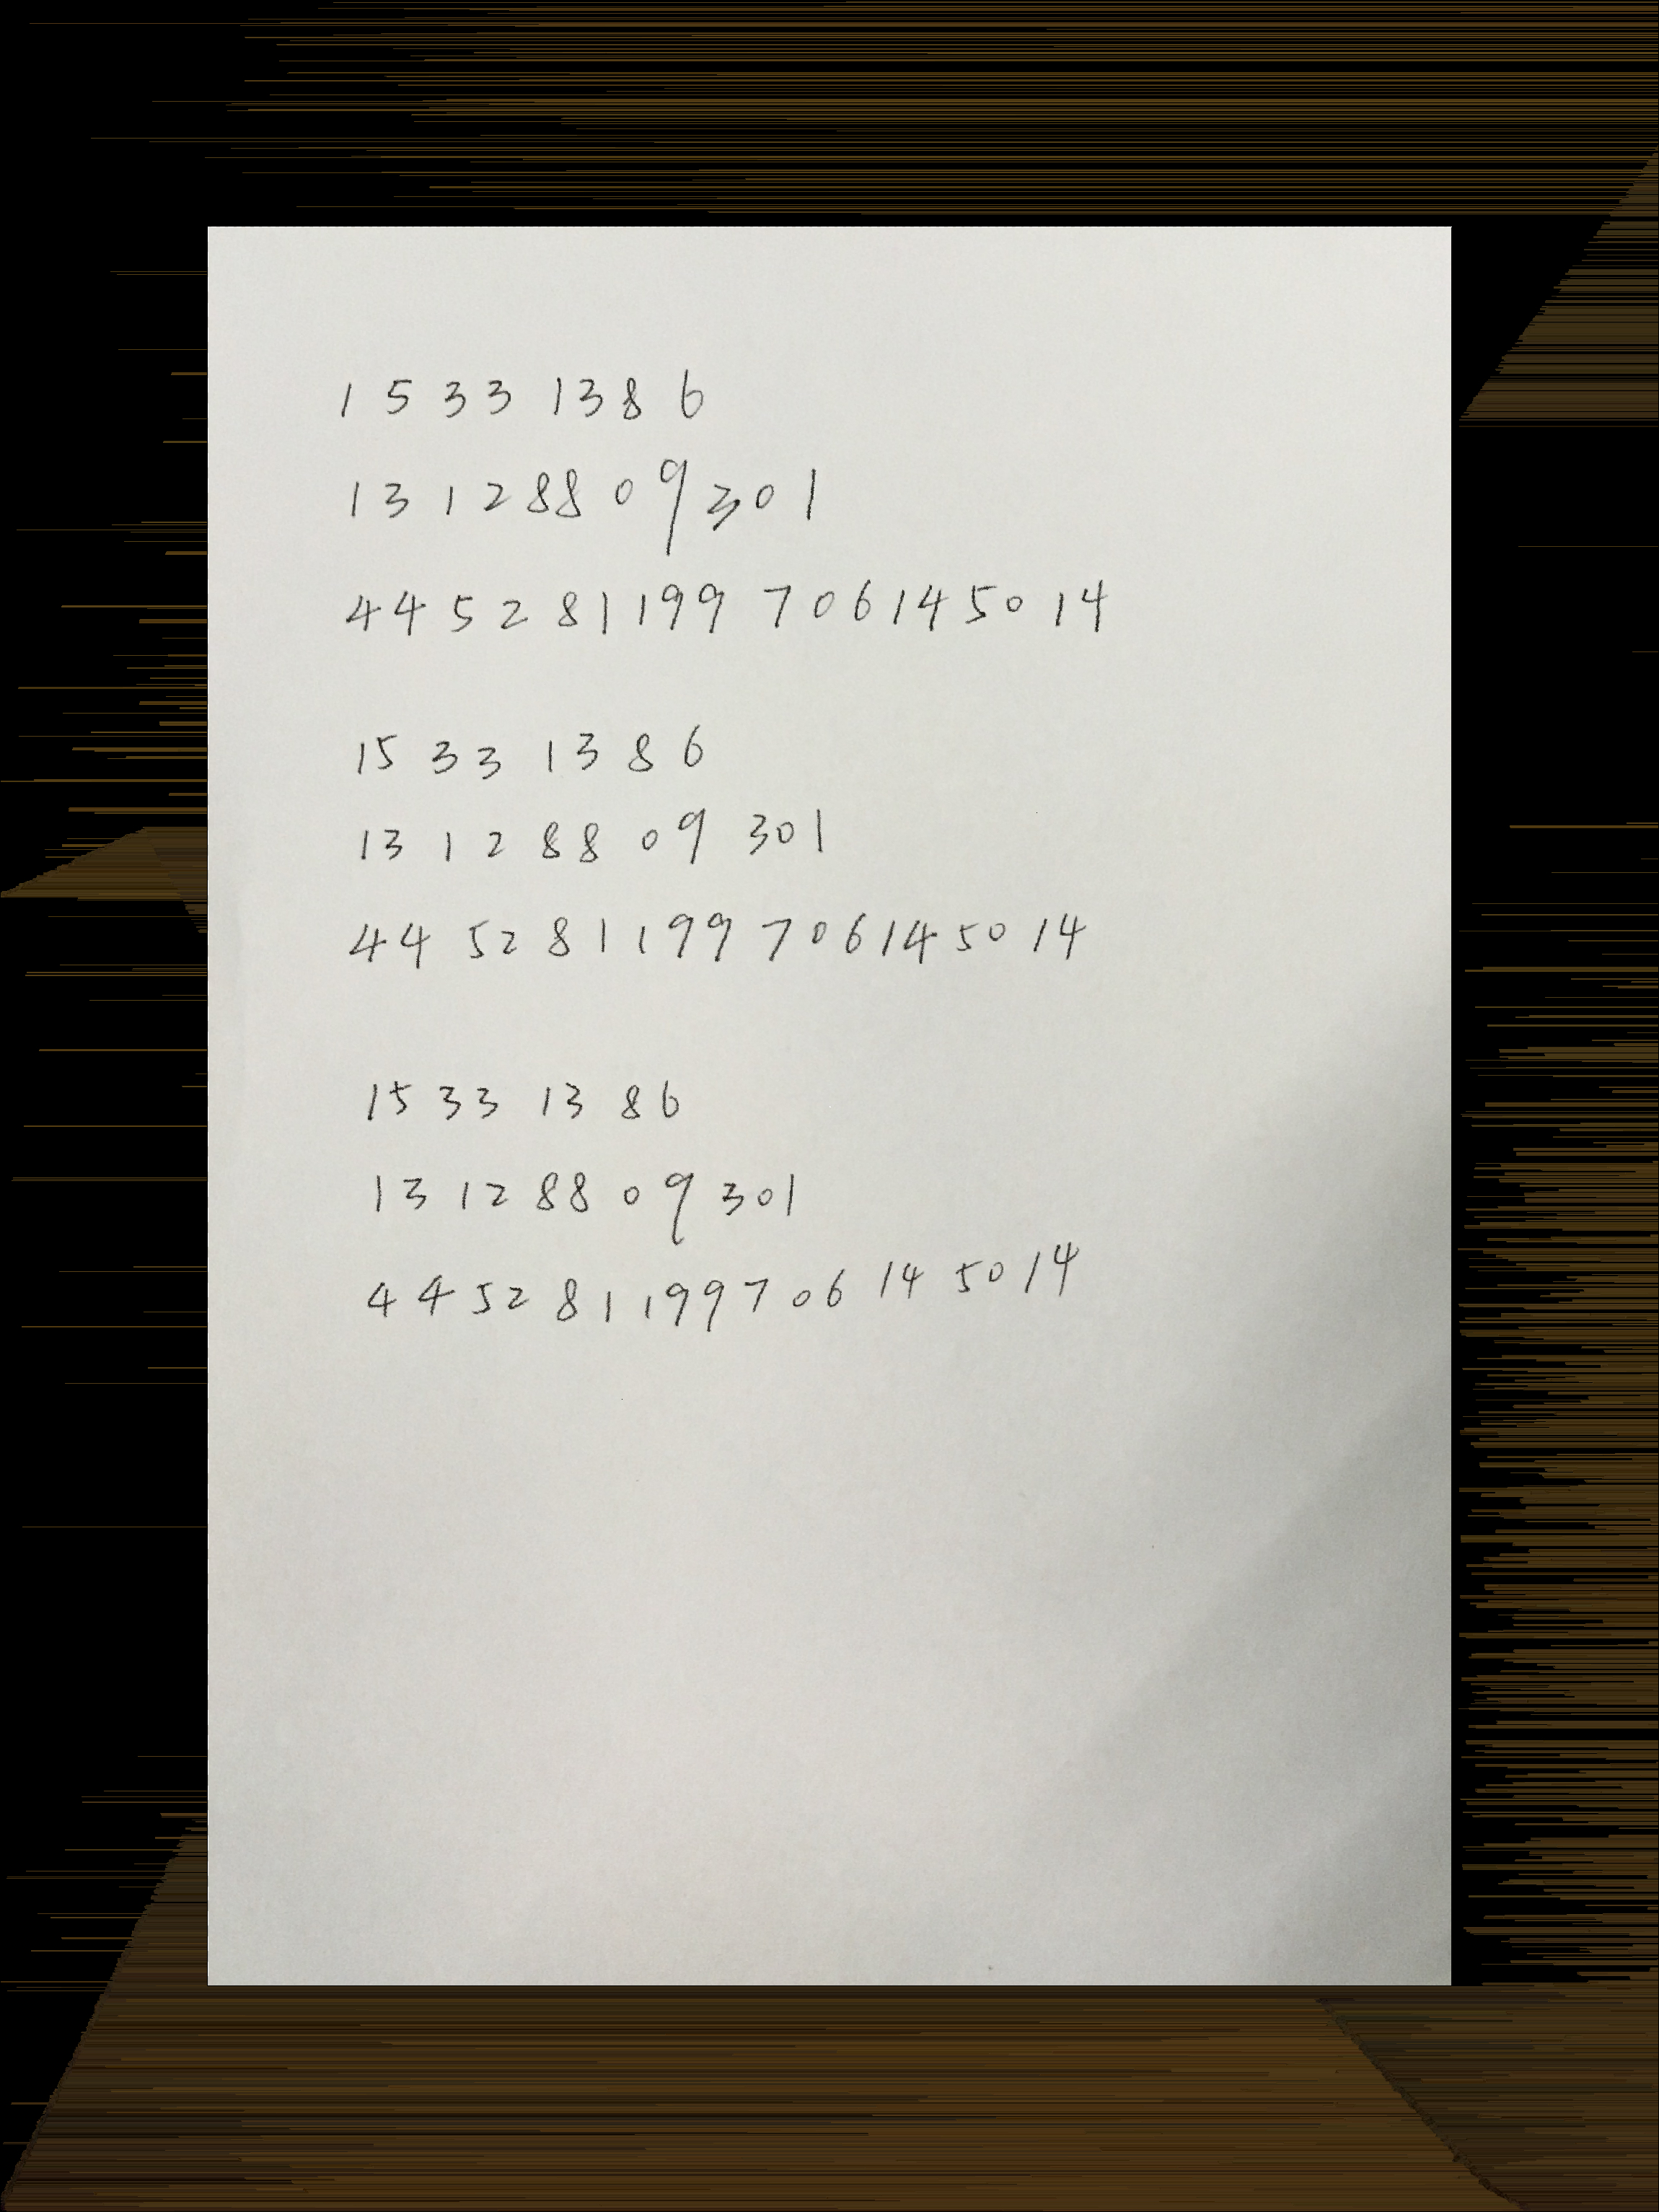 1 5 3 3 1 3 8 6
1 3 1 2 8 8 0 9 3 0 1
4 4 5 2 8 1 1 9 9 7 0 6 1 4 5 0 1 4
15 3 3 1 3 8 6
13 1 2 8 8 0 9 3 0 1
4 4 5 2 8 1 1 9 9 7 0 6 1 4 5 0 1 4
15 3 3 1 3 8 6
1 3 1 2 8 8 0 9 3 0 1
4 4 5 2 8 1 1 9 9 7 0 6 1 4 5 0 1 4